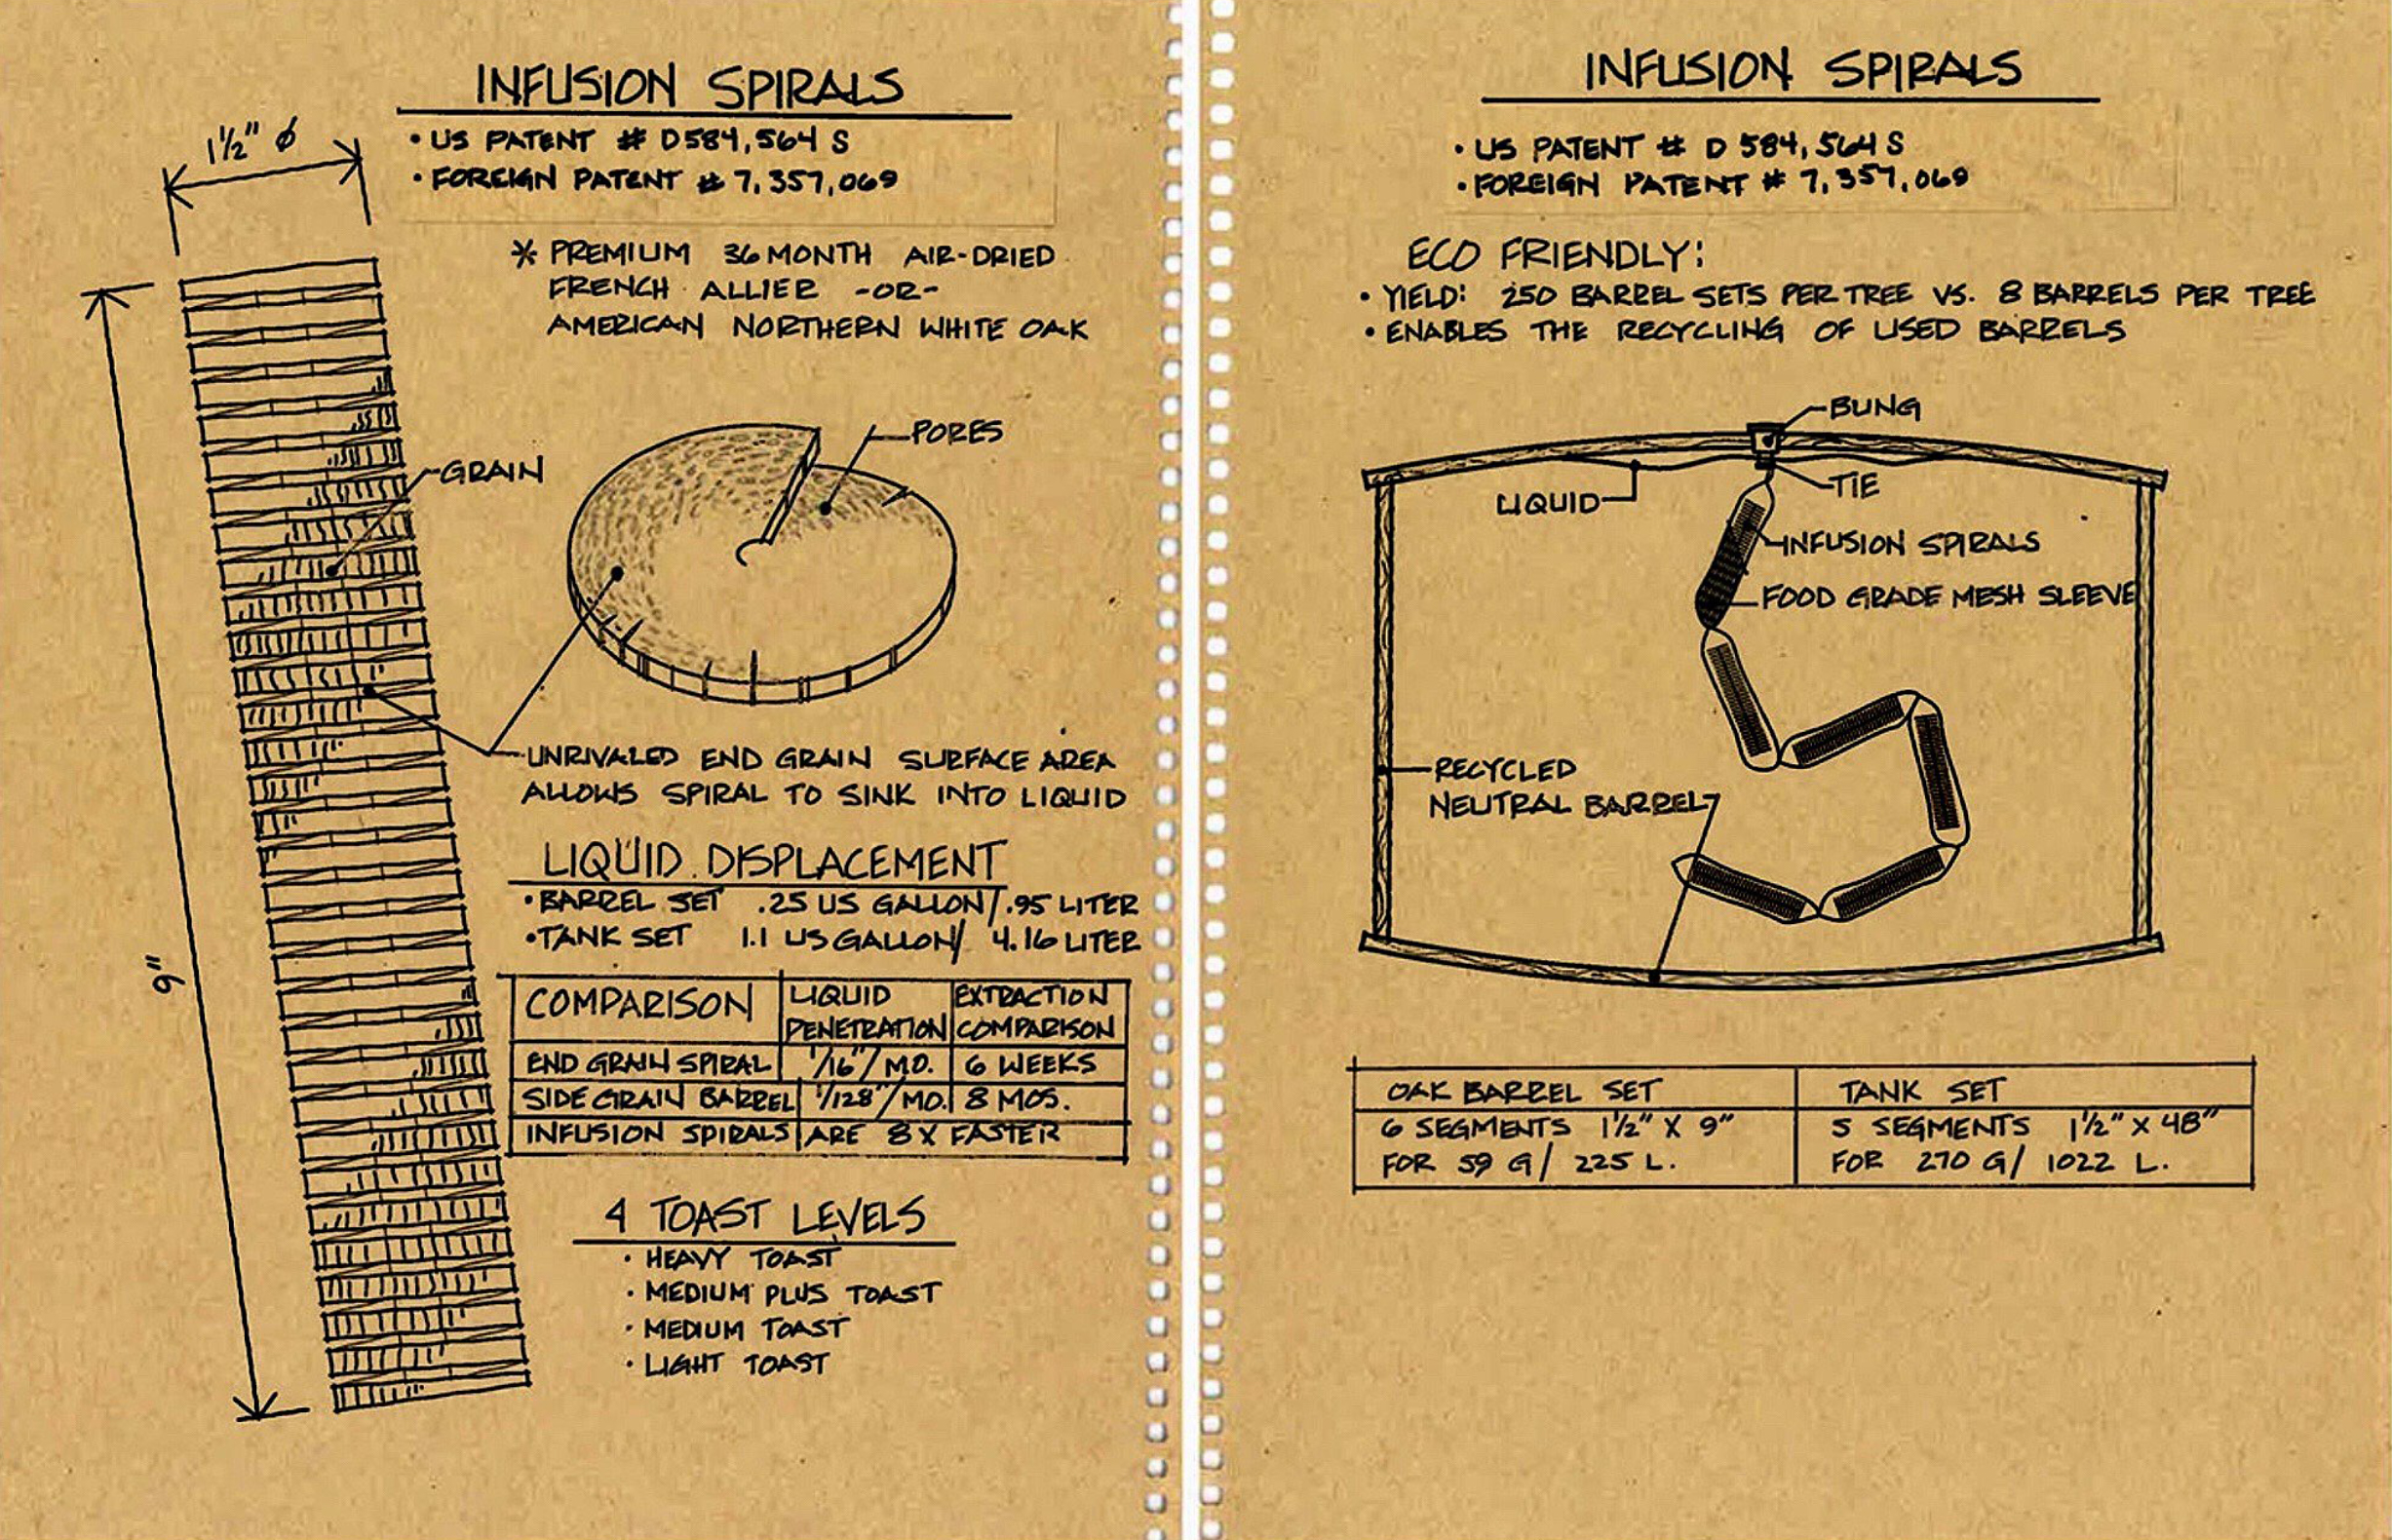 INFUSION SPIRALS
• US PATENT # D584,564 S
• FOREIGN PATENT # 7,357,069
1½" ⌀
* PREMIUM 36 MONTH AIR-DRIED
FRENCH ALLIER -OR-
AMERICAN NORTHERN WHITE OAK
PORES
GRAIN
UNRIVALED END GRAIN SURFACE AREA
ALLOWS SPIRAL TO SINK INTO LIQUID
9"
LIQUID DISPLACEMENT
• BARREL SET .25 US GALLON/.95 LITER
• TANK SET 1.1 US GALLON/ 4.16 LITER
COMPARISON LIQUID PENETRATION EXTRACTION COMPARISON
END GRAIN SPIRAL 1/16"/MO. 6 WEEKS
SIDE GRAIN BARREL 1/128"/MO. 8 MOS.
INFUSION SPIRALS ARE 8X FASTER
4 TOAST LEVELS
• HEAVY TOAST
• MEDIUM PLUS TOAST
• MEDIUM TOAST
• LIGHT TOAST
INFUSION SPIRALS
• US PATENT # D 584,564 S
• FOREIGN PATENT # 7,357,069
ECO FRIENDLY:
• YIELD: 250 BARREL SETS PER TREE VS. 8 BARRELS PER TREE
• ENABLES THE RECYCLING OF USED BARRELS
BUNG
LIQUID
TIE
INFUSION SPIRALS
FOOD GRADE MESH SLEEVE
RECYCLED
NEUTRAL BARREL
OAK BARREL SET
6 SEGMENTS 1½" X 9"
FOR 59 G/ 225 L.
TANK SET
5 SEGMENTS 1½" X 48"
FOR 270 G/ 1022 L.